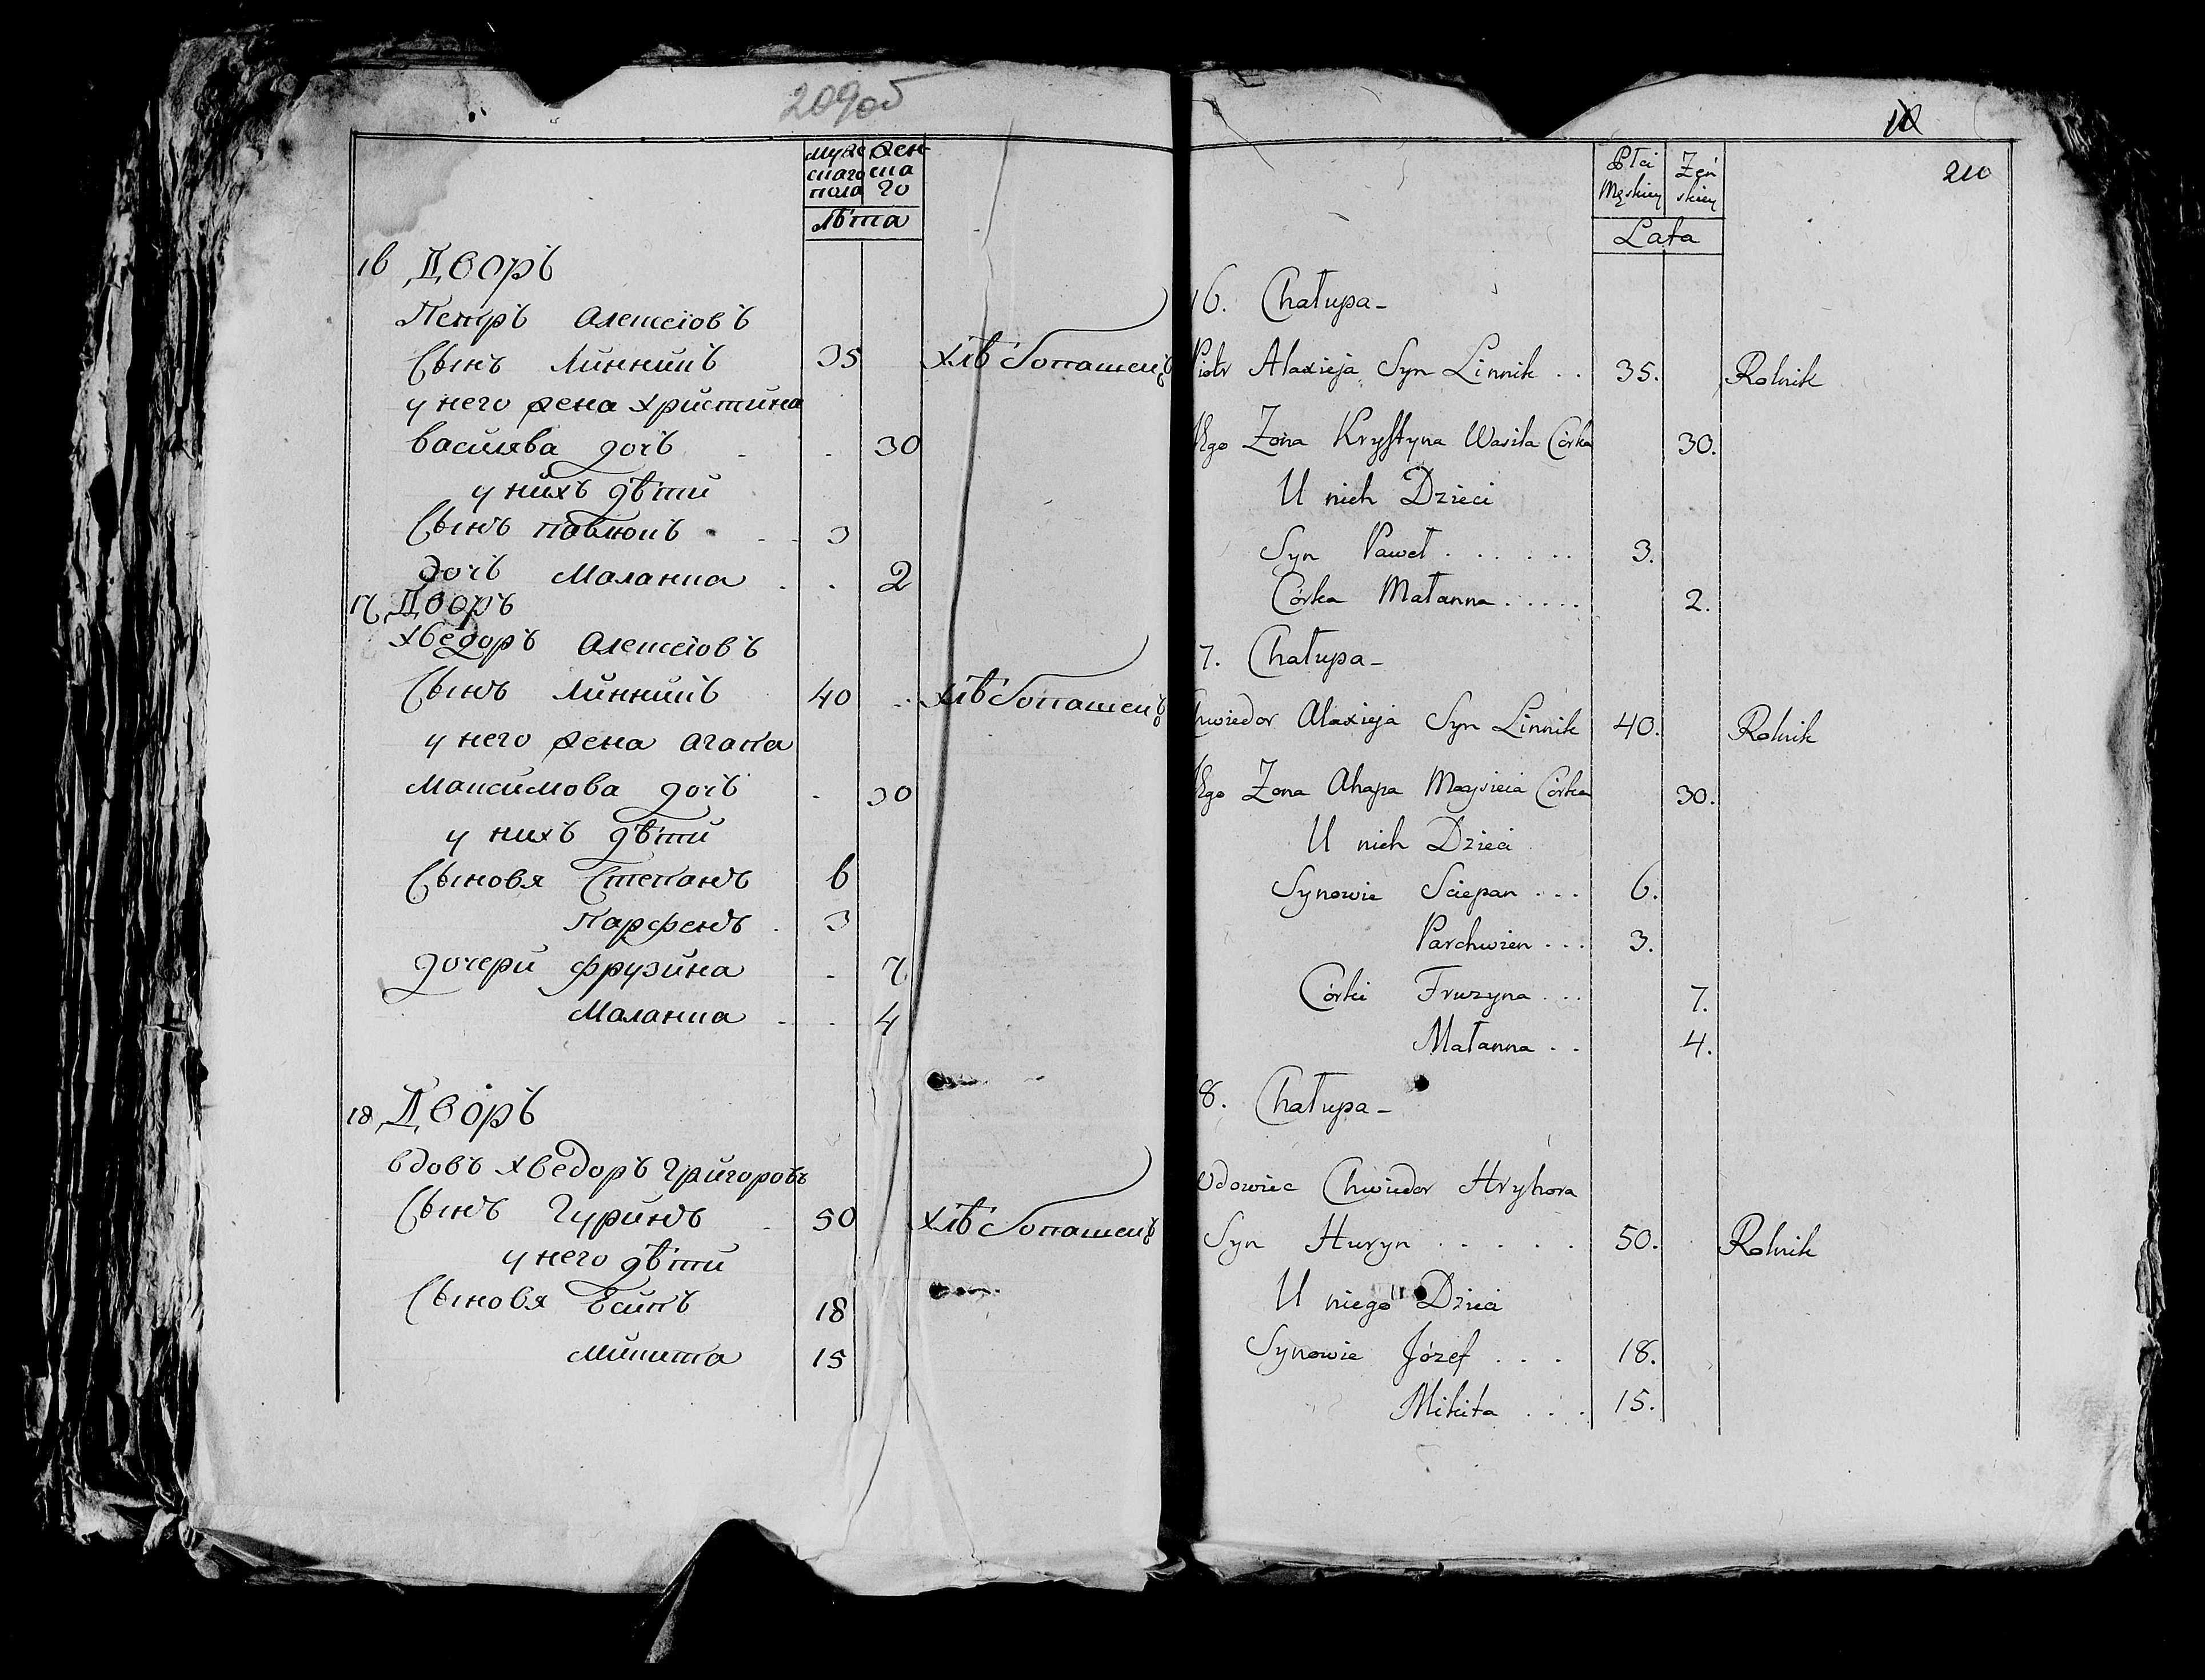 209об
муже
скаго
пола
жен
ска
го
лѣта
16 Дворъ
Петръ Алексѣовъ
Сынъ Линникъ 35 хлѣбопашецъ
у него жена христина
василява дочь 30
у нихъ дѣти
Сынъ павлюкъ 3
дочь Маланка 2
17 Дворъ
хведоръ Алексѣовъ
Сынъ Линникъ 40 хлѣбопашецъ
у него жена агапа
Максимова дочь 30
у нихъ дѣти
Сыновя Степанъ 6
Парфенъ 3
дочери Фрузина 7
Маланка 4
18 Дворъ
вдовъ хведоръ Григоровъ
Сынъ Гуринъ 50 хлѣбопашецъ
у него дѣти
Сыновя Есипъ 18
микита 15
210
Płci
Męskiey
Żeń
skiey
Lata
16. Chałupa
Piotr Alaxieja Syn Linnik 35. Rolnik
Jego Żona Krystyna Wasila Córka 30.
U nich Dzieci
Syn Paweł 3.
Córka Małanna 2.
7. Chałupa
Chwiedor Alaxieja Syn Linnik 40. Rolnik
Jego Zona Ahapa Córka 30.
U nich Dzieci
Synowie Sciepan 6.
Parchwien 3.
Córki Fruzyna 7.
Małanna 4.
8. Chałupa
Wdowiec Chwiedor Hryhora
Syn Huryn 50. Rolnik
U niego Dzieci
Synowie Józef 18.
Mikita 15.